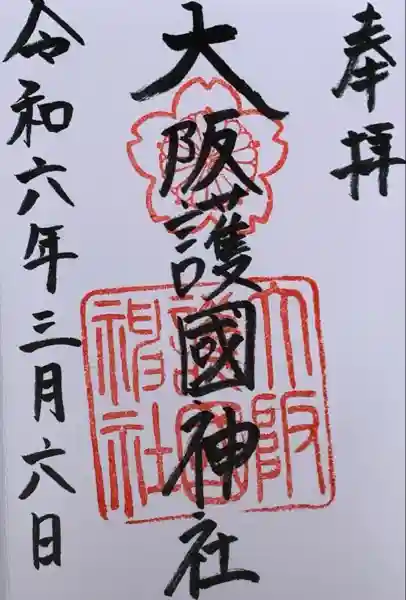 奉拝
大阪護國神社
大阪護國神社
令和六年三月六日